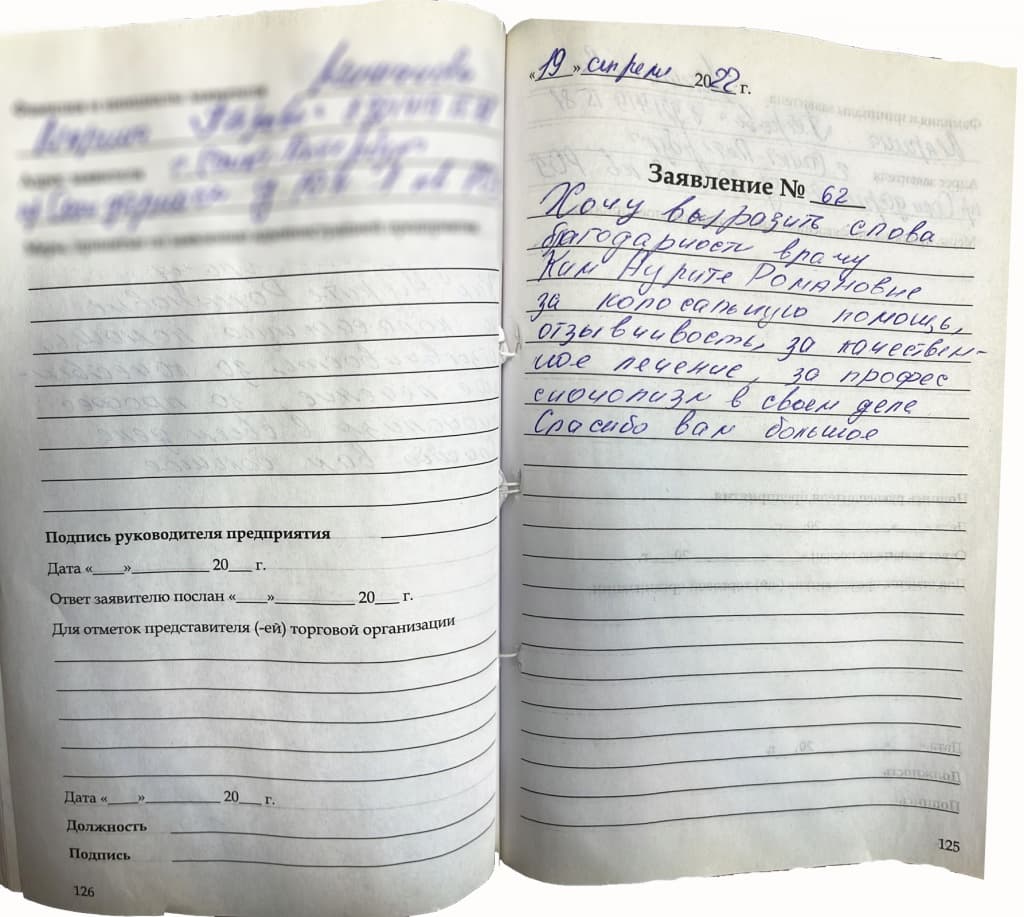 Подпись руководителя предприятия
Дата «____»__________ 20___ г.
Ответ заявителю послан «____»__________ 20___ г.
Для отметок представителя (-ей) торговой организации
Дата «____»__________ 20___ г.
Должность
Подпись
126
«19» апреля 2022 г.
Заявление № 62
Хочу выразить слова
благодарности врачу
Ким Нурите Романовне
за колосальную помощь,
отзывчивость, за качествен-
ное лечение, за профес
сионолизм в своем деле
Спасибо вам большое
125